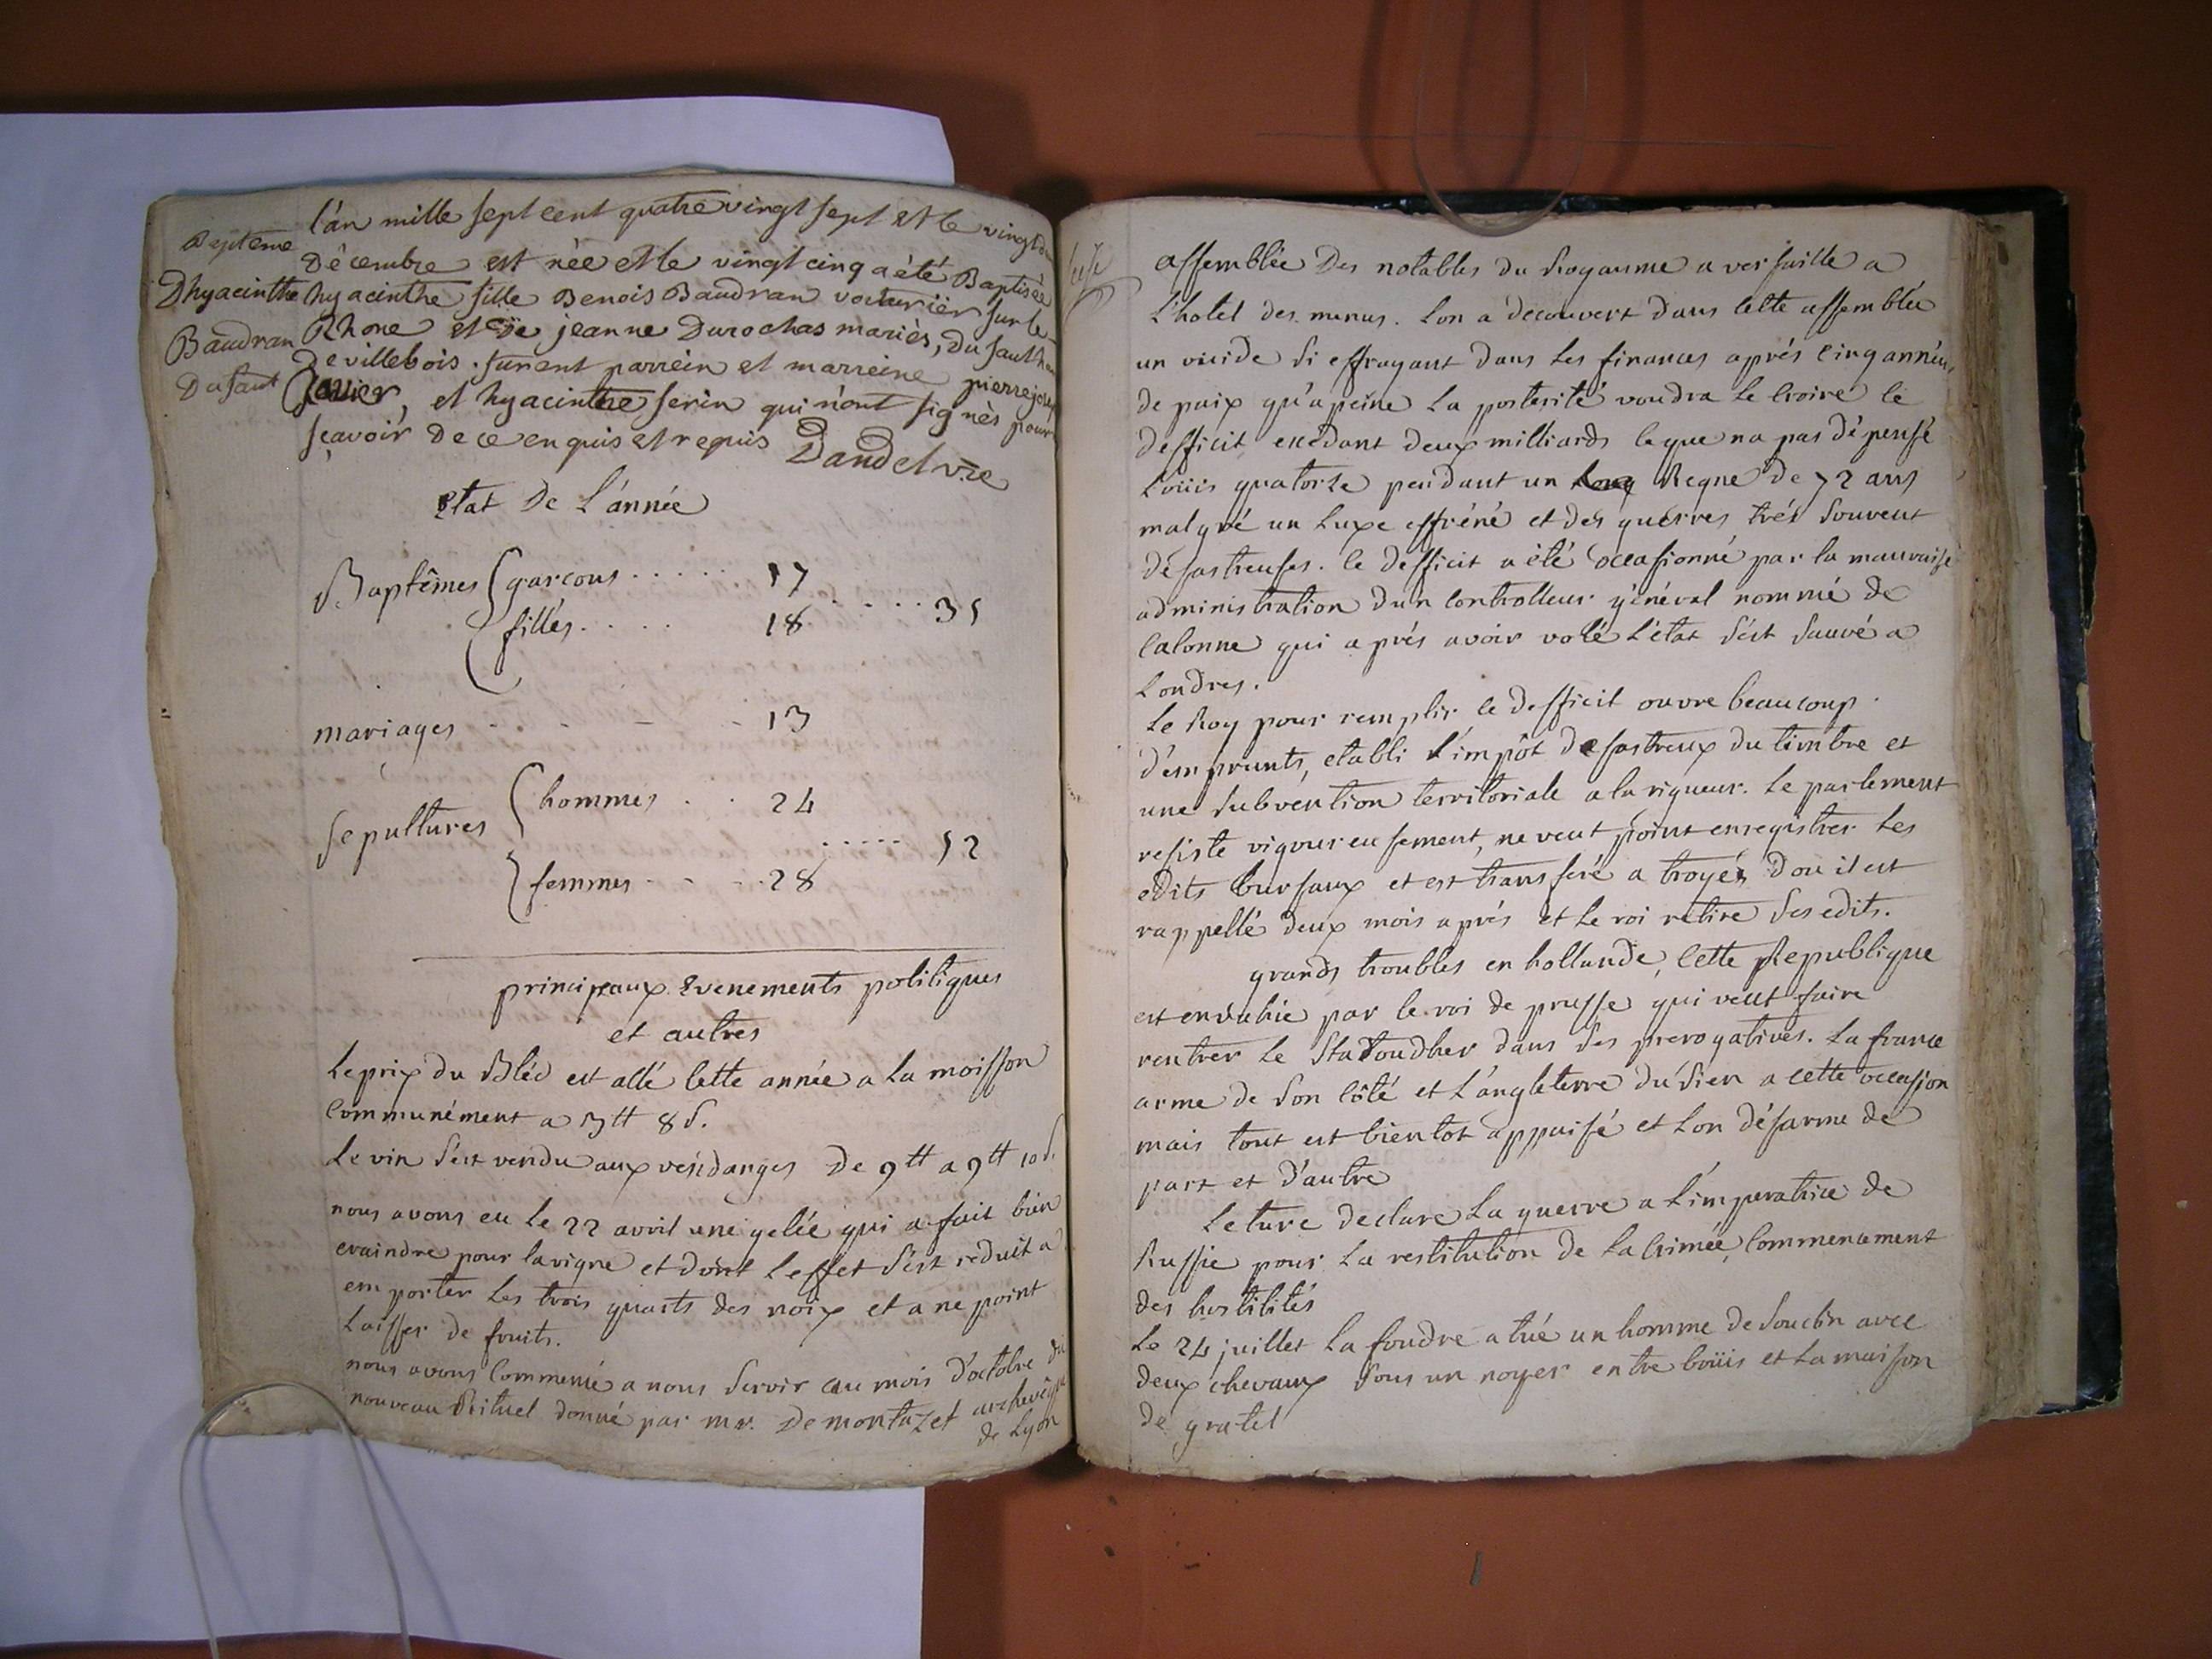 l'án mille sept cent quatre vingt sept et le vingt
Décembre est née et le vingt cinq a été Baptisée
hyacinthe fille Benois Baudran voiturier sur le
Rhone et de jeanne Durochas mariés, du Sault
De villebois. furent parrein et marreine pierre joseph
Javier, et hyacinthe serin qui n'ont signès pour
sçavoir De ce enquis et requis Dandel vre
Beptême
Dhyacinthe
Baudran
Du Saut
Etat De L'ánnée
Baptêmes garcons 17
35
filles 18
mariages 13
hommes 24
sepultures 52
femmes 28
principaux Evenements politiques
et autres
Le prix du Bléd est allé cette année a La moisson
communément a 3tt 8s.
Le vin s'est vendu aux vendanges De 9tt a 9tt 10s.
nous avons eu Le 22 avril une gelée qui a fait bien
craindre pour la vigne et dont L'effet s'est réduit a
emporter Les trois quarts des noix et a ne point
Laisser de fruits.
nous avons commencé a nous servir au mois d'octobre du
nouveau Rituel donné par mr. De montazet archevêque
de Lyon
assemblée Des notables du Royaume a versaille a
L'hotel des menus. Lon a decouvert dans cette assemblée
un vuide si effrayant dans Les finances aprés cinq années
de paix qu'a peine La posterité voudra Le croire ce
defficit excédant deux milliards ce que na pas dépensé
Loüis quatorse pendant un Regne de 72 ans
malgré un Luxe effréné et des guerres trés souvent
désastreuses. ce defficit a été occasionné par la mauvaise
administration dun controlleur général nommé de
Calonne qui aprés avoir volé L'état s'est sauvé a
Londres.
Le Roy pour remplir ce defficit ouvre beaucoup
d'emprunts, etabli L'impôt desastreux du timbre et
une subvention territoriale a la rigueur. Le parlement
resiste vigoureusement, ne veut point enregistrer Les
edits bursaux et est transferé a troyes d'ou il est
rappellé deux mois aprés et Le roi retire ses edits.
grands troubles en hollande, cette Republique
est envahie par le roi de prusse qui veut faire
rentrer Le Statoudher dans ses prerogatives. La france
arme de son côté et L'angleterre du sien a cette occasion
mais tout est bientot appaisé et Lon désarme de
part et d'autre
Le turc declare La guerre a L'imperatrice de
Russie pour La restitution de La Crimée, commencement
des hostilités
Le 24 juillet La foudre a tué un homme de souclin avec
deux chevaux sous un noyer entre boüis et La maison
de gratel